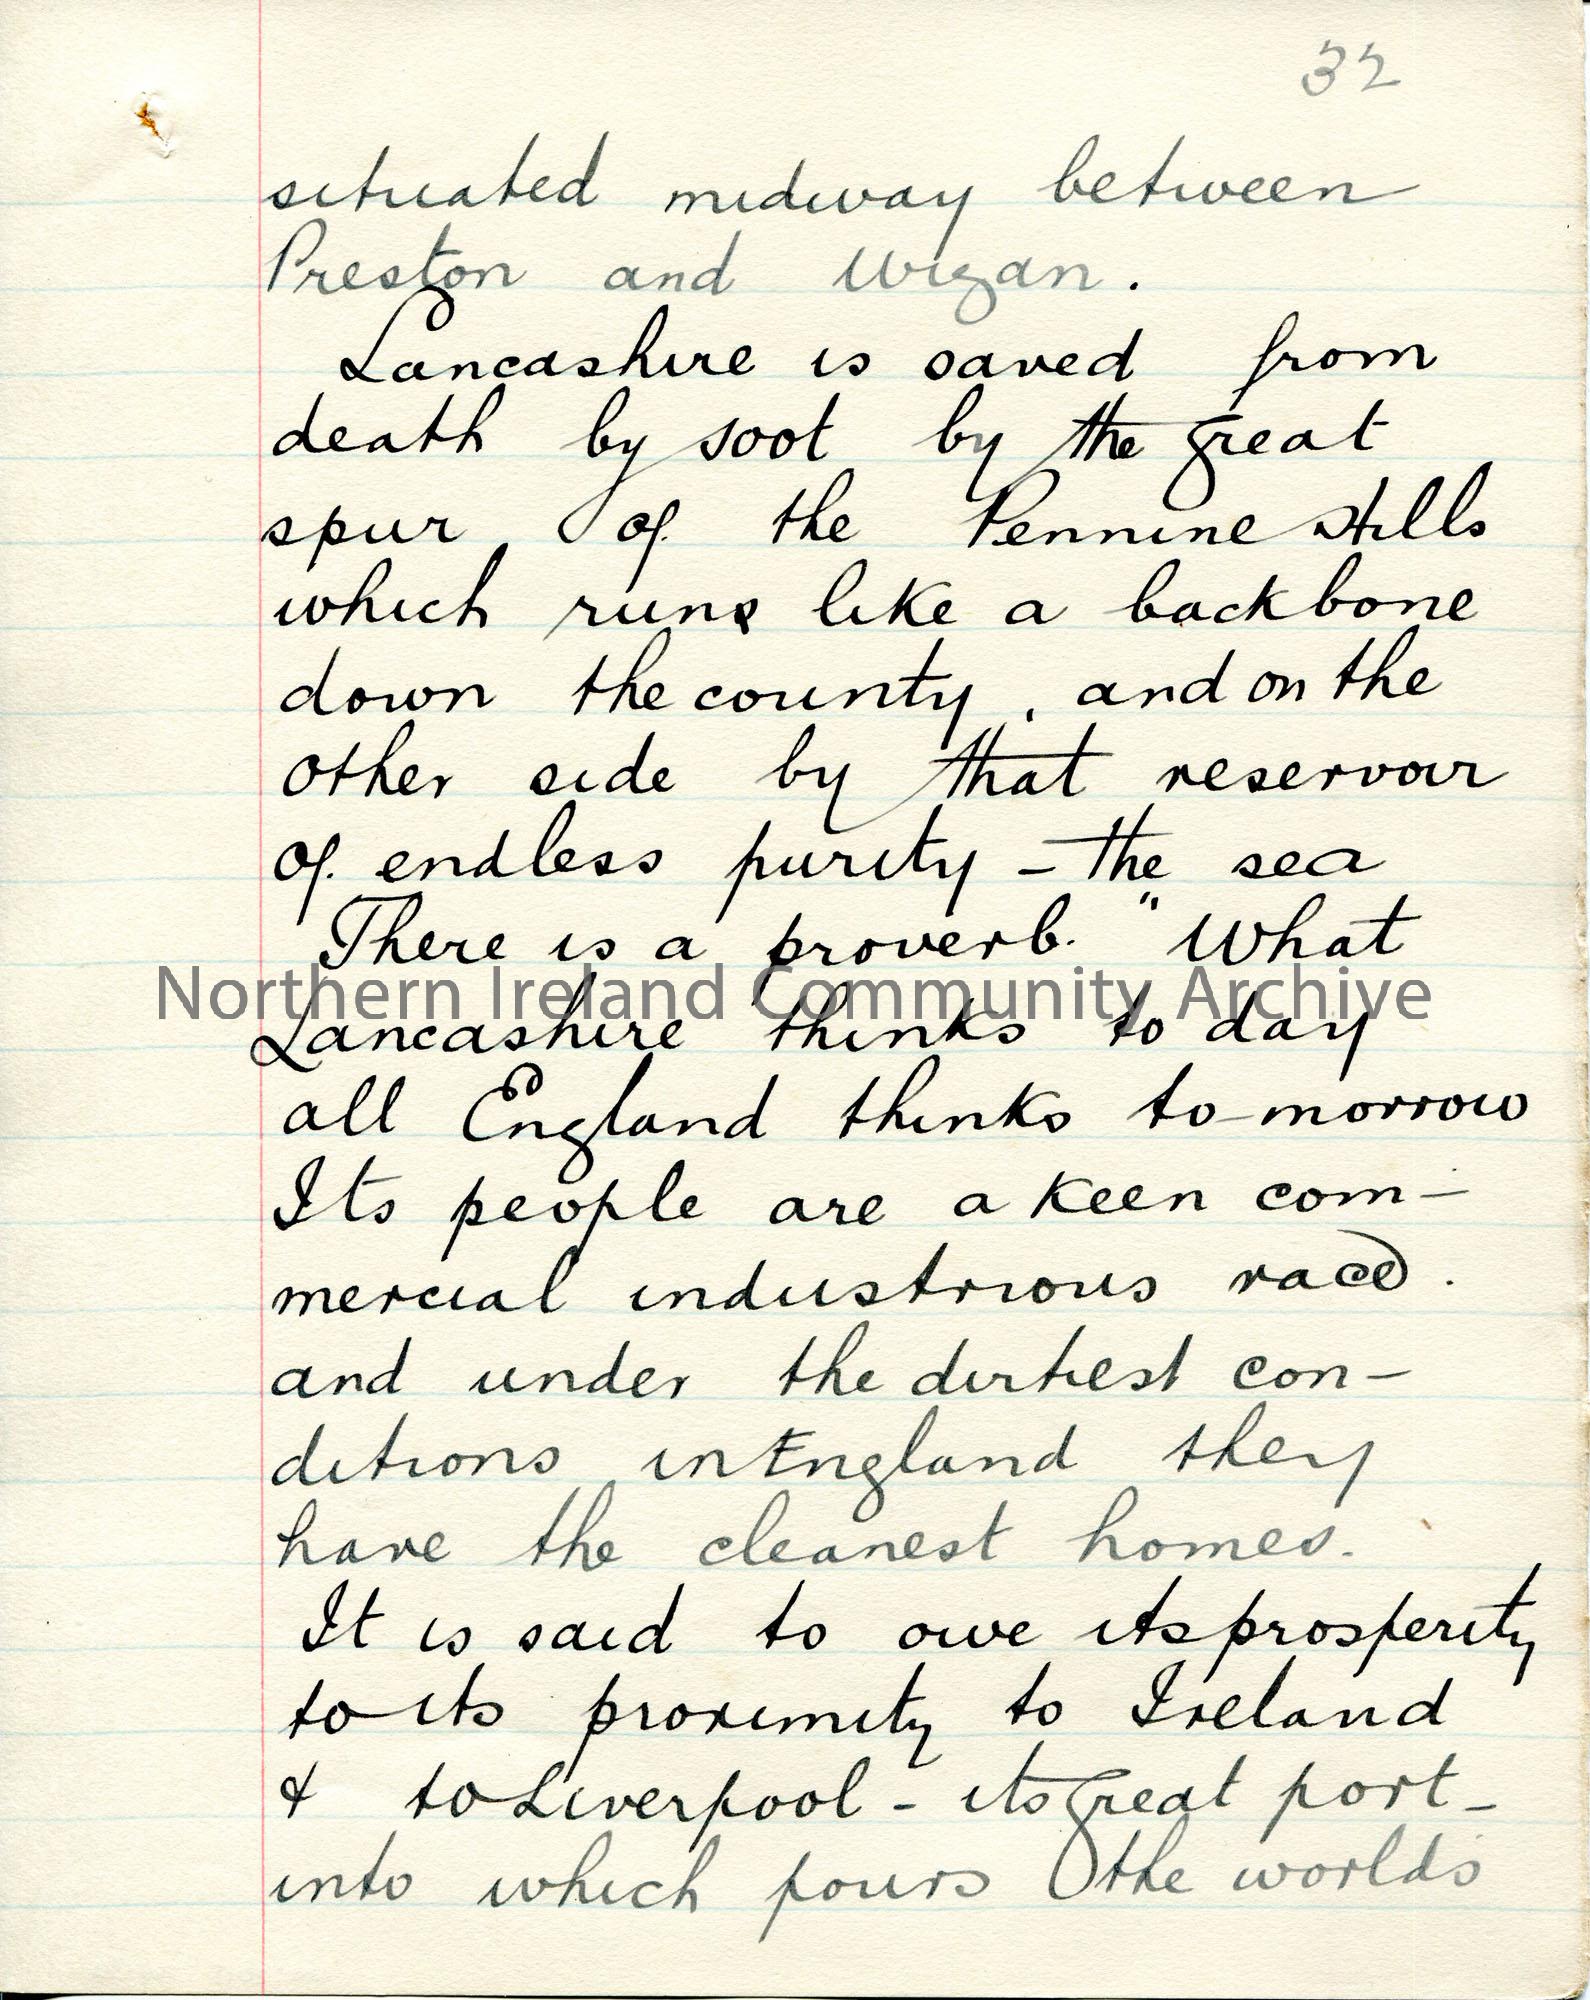 32
situated midway between
Preston and Wigan.
Lancashire is saved from
death by soot by the great
spur of the Pennine Hills
which runs like a backbone
down the county, and on the
other side by that reservoir
of endless purity - the sea
There is a proverb. "What
Northern Ireland Community Archive
Lancashire thinks to day
all England thinks to-morrow
Its people are a keen com-
mercial industrious race.
and under the dirtiest con-
ditions in England they
have the cleanest homes.
It is said to owe its prosperity
to its proximity to Ireland
& to Liverpool - its great port -
into which pours the worlds